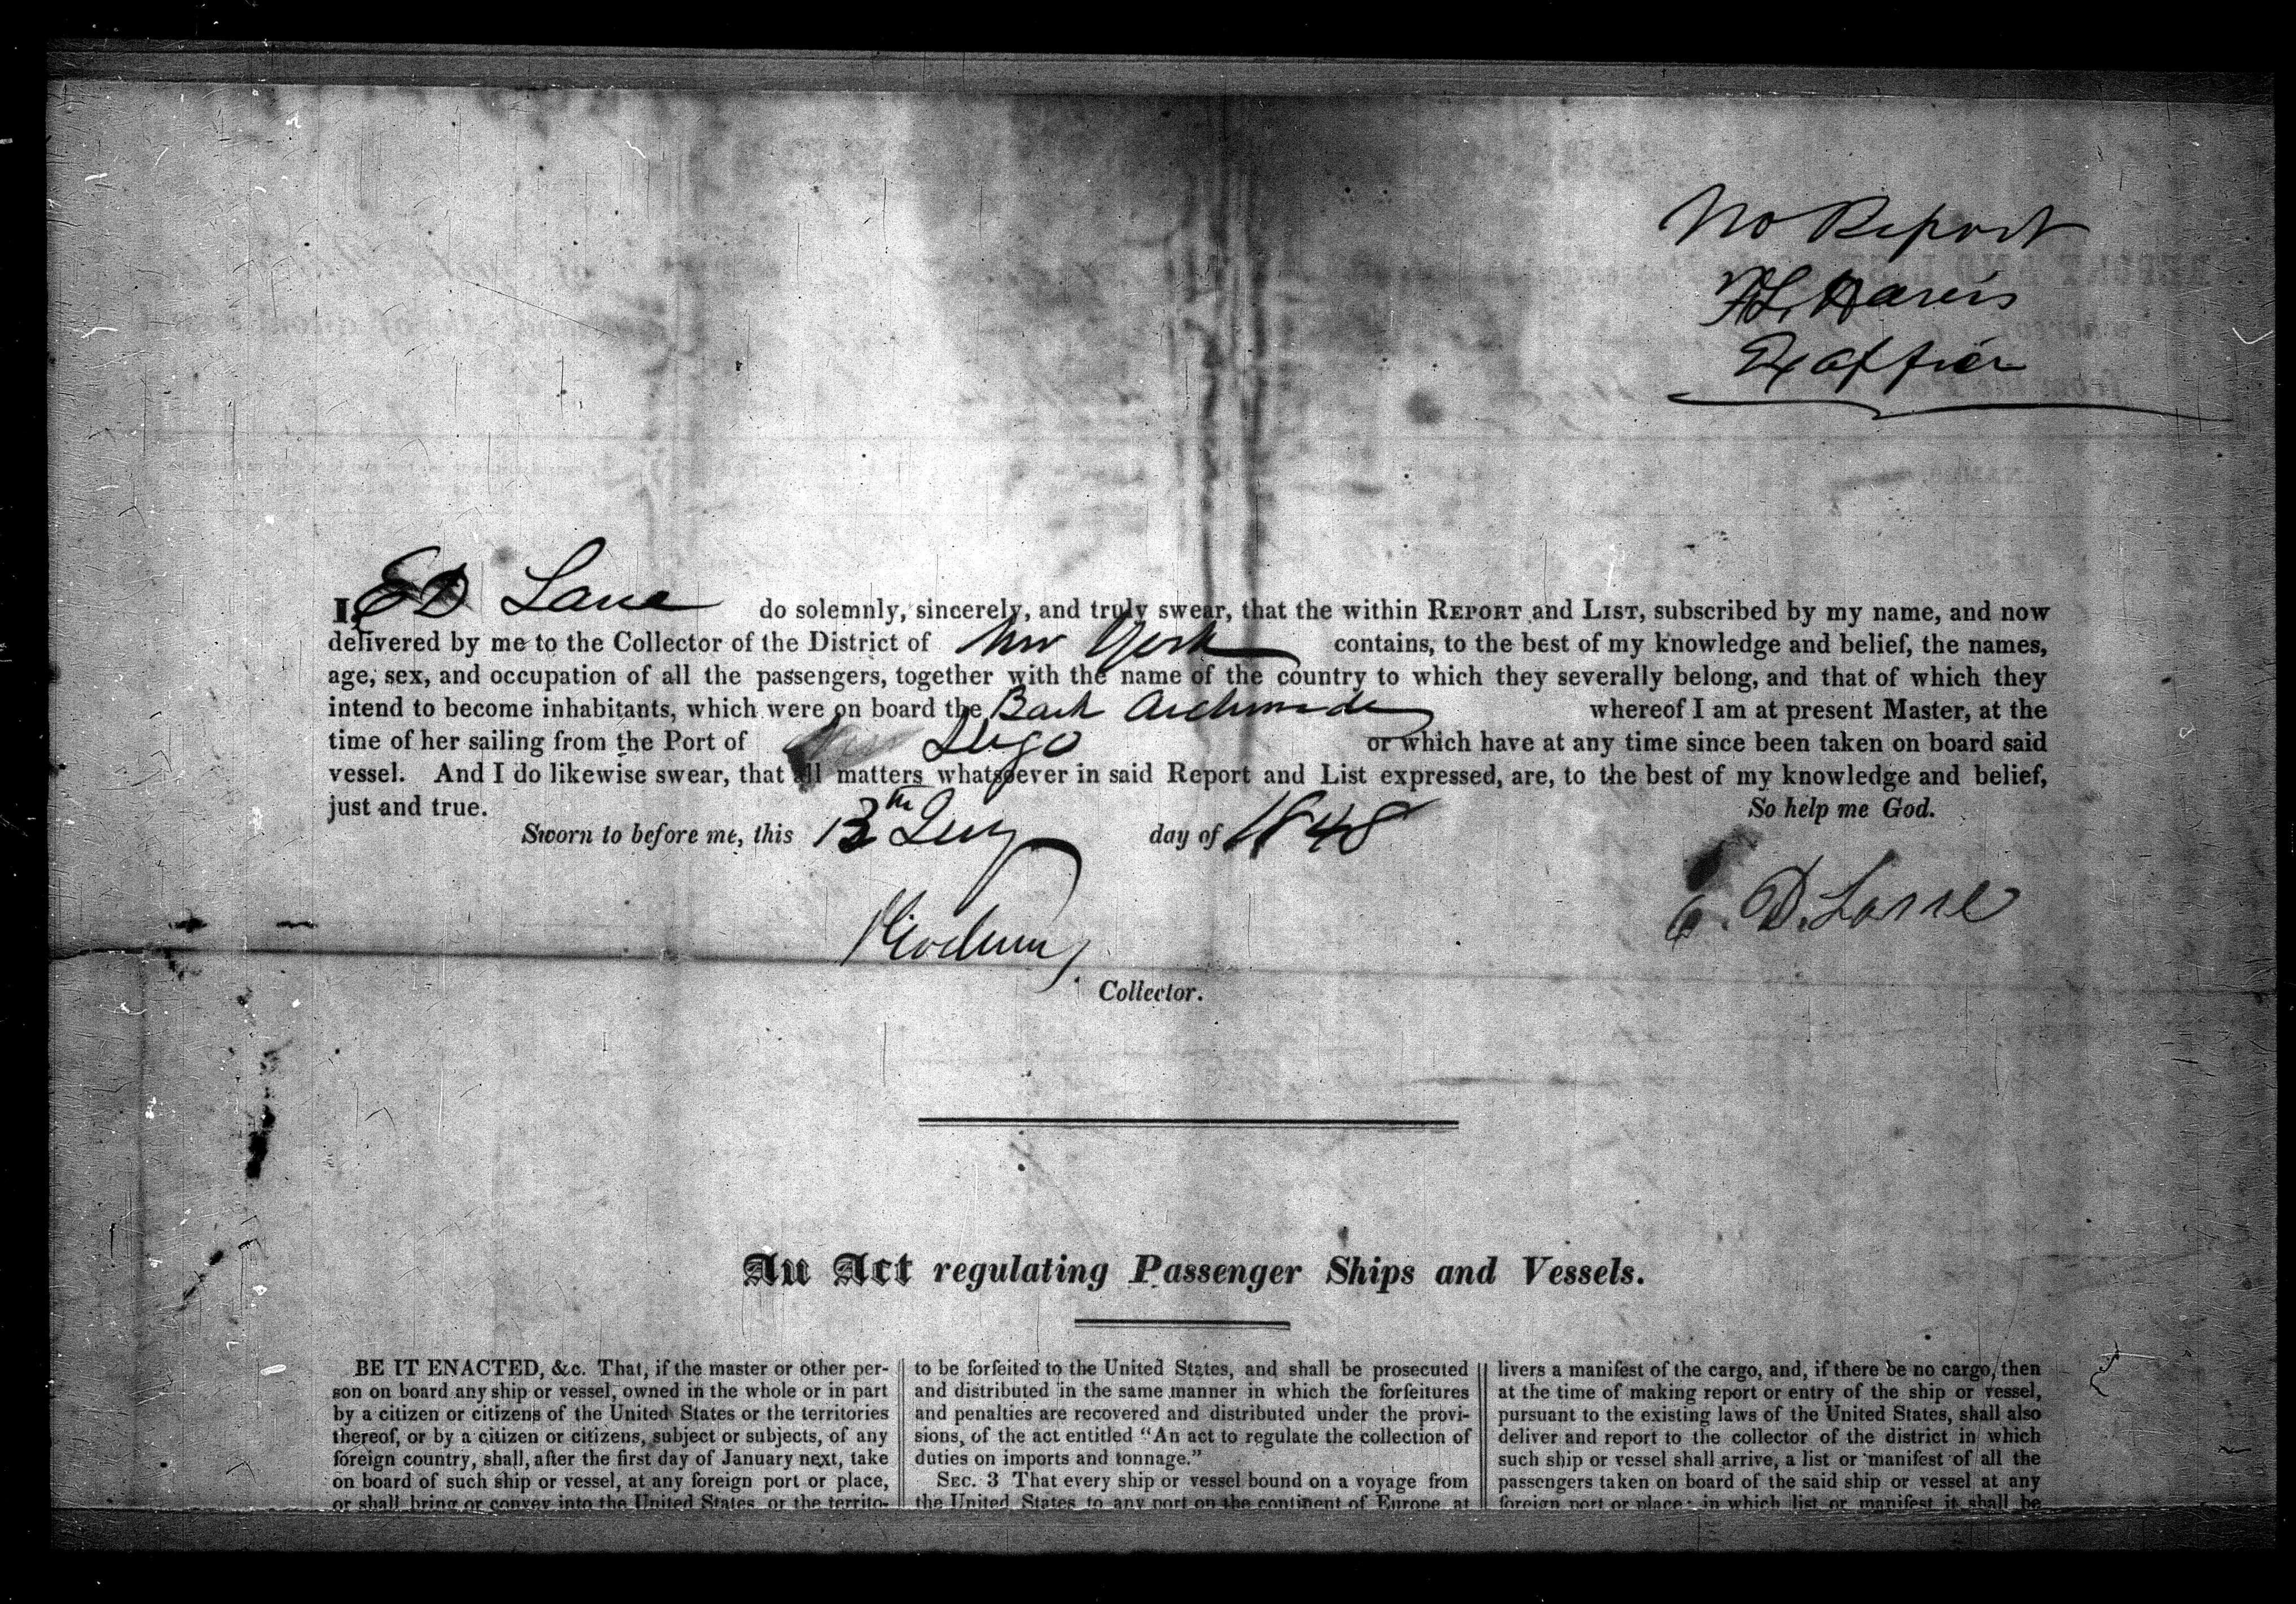 No Report
I, E D Lane do solemnly, sincerely, and truly swear, that the within REPORT and LIST, subscribed by my name, and now
delivered by me to the Collector of the District of New York contains, to the best of my knowledge and belief, the names,
age, sex, and occupation of all the passengers, together with the name of the country to which they severally belong, and that of which they
intend to become inhabitants, which were on board the Bark Archimedes whereof I am at present Master, at the
time of her sailing from the Port of or which have at any time since been taken on board said
vessel. And I do likewise swear, that all matters whatsoever in said Report and List expressed, are, to the best of my knowledge and belief,
just and true. So help me God.
Sworn to before me, this 13th day of 1848
E. D. Lane
Collector.
An Act regulating Passenger Ships and Vessels.
BE IT ENACTED, &c. That, if the master or other per-
son on board any ship or vessel, owned in the whole or in part
by a citizen or citizens of the United States or the territories
thereof, or by a citizen or citizens, subject or subjects, of any
foreign country, shall, after the first day of January next, take
on board of such ship or vessel, at any foreign port or place,
or shall bring or convey into the United States, or the territo-
to be forfeited to the United States, and shall be prosecuted
and distributed in the same manner in which the forfeitures
and penalties are recovered and distributed under the provi-
sions, of the act entitled "An act to regulate the collection of
duties on imports and tonnage."
SEC. 3 That every ship or vessel bound on a voyage from
the United States to any port on the continent of Europe, at
livers a manifest of the cargo, and, if there be no cargo, then
at the time of making report or entry of the ship or vessel,
pursuant to the existing laws of the United States, shall also
deliver and report to the collector of the district in which
such ship or vessel shall arrive, a list or manifest of all the
passengers taken on board of the said ship or vessel at any
foreign port or place; in which list or manifest it shall be